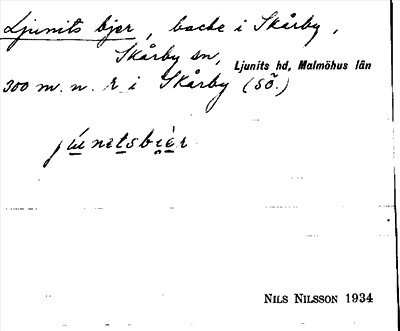 Ljunits bjer, backe i Skårby,
Skårby sn, Ljunits hd, Malmöhus län
300 m. n. k. i Skårby (SÖ.)
NILS NILSSON 1934